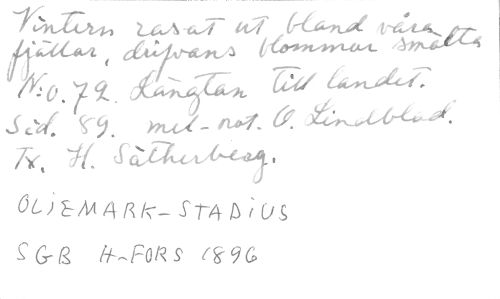 Vintern rasat ut bland våra
fjällar, drifvans blommor smälta
N:o. 72. Längtan till landet.
Sid. 89. mel-not. O. Lindblad.
Tx. H. Sätherberg.
OLJEMARK-STADIUS
SGB H-FORS 1896